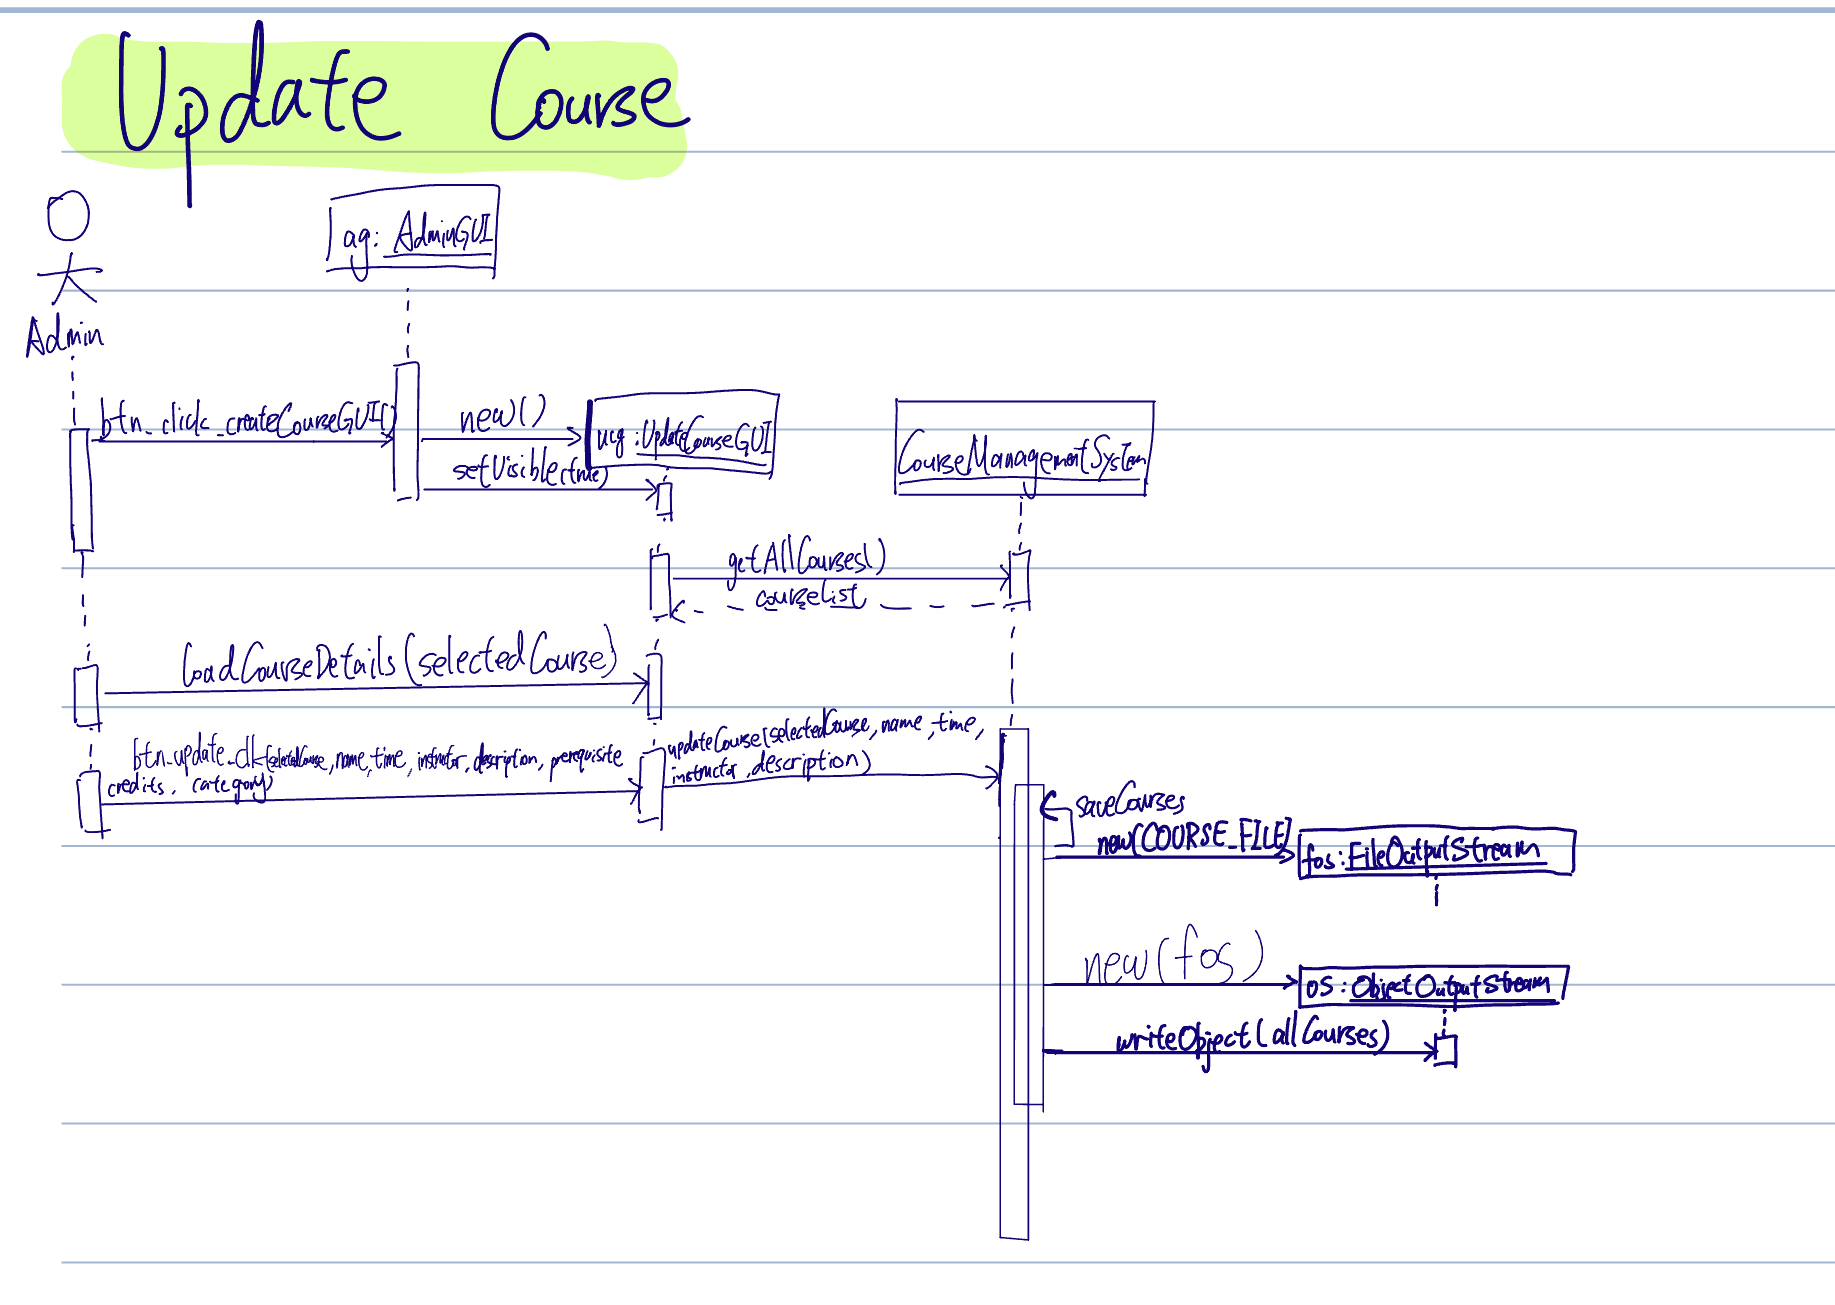 Update Course
ag: AdminGUI
Admin
btn_click_createCourseGUI()
new()
ucg:UpdateCourseGUI
setVisible(true)
CourseManagementSystem
getAllCourses()
courseList
loadCourseDetails(selectedCourse)
btn_update_clk(selectedCourse, name, time, instructor, description, prerequisite
credits, category)
updateCourse(selectedCourse, name, time,
instructor, description)
saveCourses
new(COURSE_FILE)
fos:FileOutputStream
new(fos)
os:ObjectOutputStream
writeObject(allCourses)